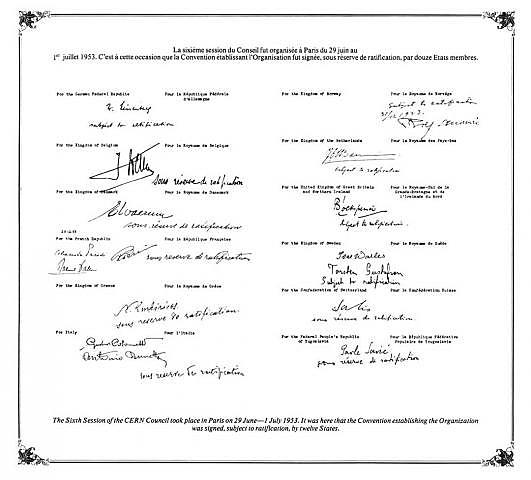 La sixième session du Conseil fut organisée à Paris du 29 juin au
1er juillet 1953. C'est à cette occasion que la Convention établissant l'Organisation fut signée, sous réserve de ratification, par douze Etats membres.
For the German Federal Republic Pour la République Fédérale
d'Allemagne
subject to ratification
For the Kingdom of Belgium Pour le Royaume de Belgique
sous réserve de ratification
For the Kingdom of Denmark Pour le Royaume de Danemark
sous réserve de ratification
For the French Republic Pour la République Française
sous réserve de ratification
For the Kingdom of Greece Pour le Royaume de Grèce
sous réserve de ratification.
For Italy Pour l'Italie
sous réserve de ratification
For the Kingdom of Norway Pour le Royaume de Norvège
Subject to ratification
For the Kingdom of the Netherlands Pour le Royaume des Pays-Bas
subject to ratification
For the United Kingdom of Great Britain Pour le Royaume-Uni de la
and Northern Ireland Grande-Bretagne et de
l'Irlande du Nord
subject to ratification.
For the Kingdom of Sweden Pour le Royaume de Suède
Torsten Gustafson
Subject to ratification
For the Confederation of Switzerland Pour la Confédération Suisse
sous réserve de ratification
For the Federal People's Republic Pour la République Fédérative
of Yugoslavia Populaire de Yougoslavie
Pavle Savić
sous réserve de ratification
The Sixth Session of the CERN Council took place in Paris on 29 June—1 July 1953. It was here that the Convention establishing the Organization
was signed, subject to ratification, by twelve States.